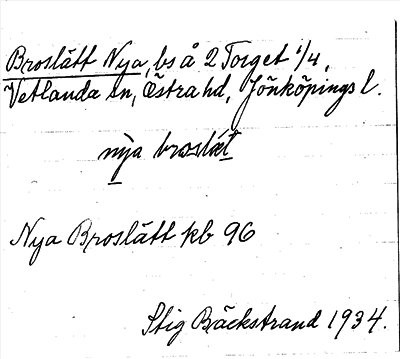 Broslätt Nya, bs å 2 Torget 1/4,
Vetlanda sn, Östra hd, Jönköpings l.
nỳa broslæt
Nya Broslätt kb 96
Stig Bäckstrand 1934.